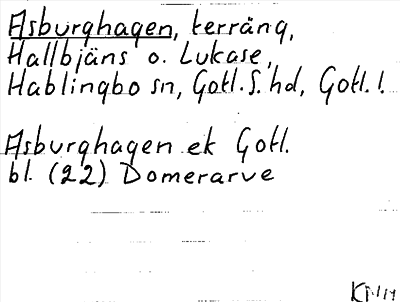 Asburghagen, terräng,
Hallbjäns o. Lukase,
Hablingbo sn, Gotl. S. hd, Gotl. l.
Asburghagen ek Gotl.
bl. (22) Domerarve